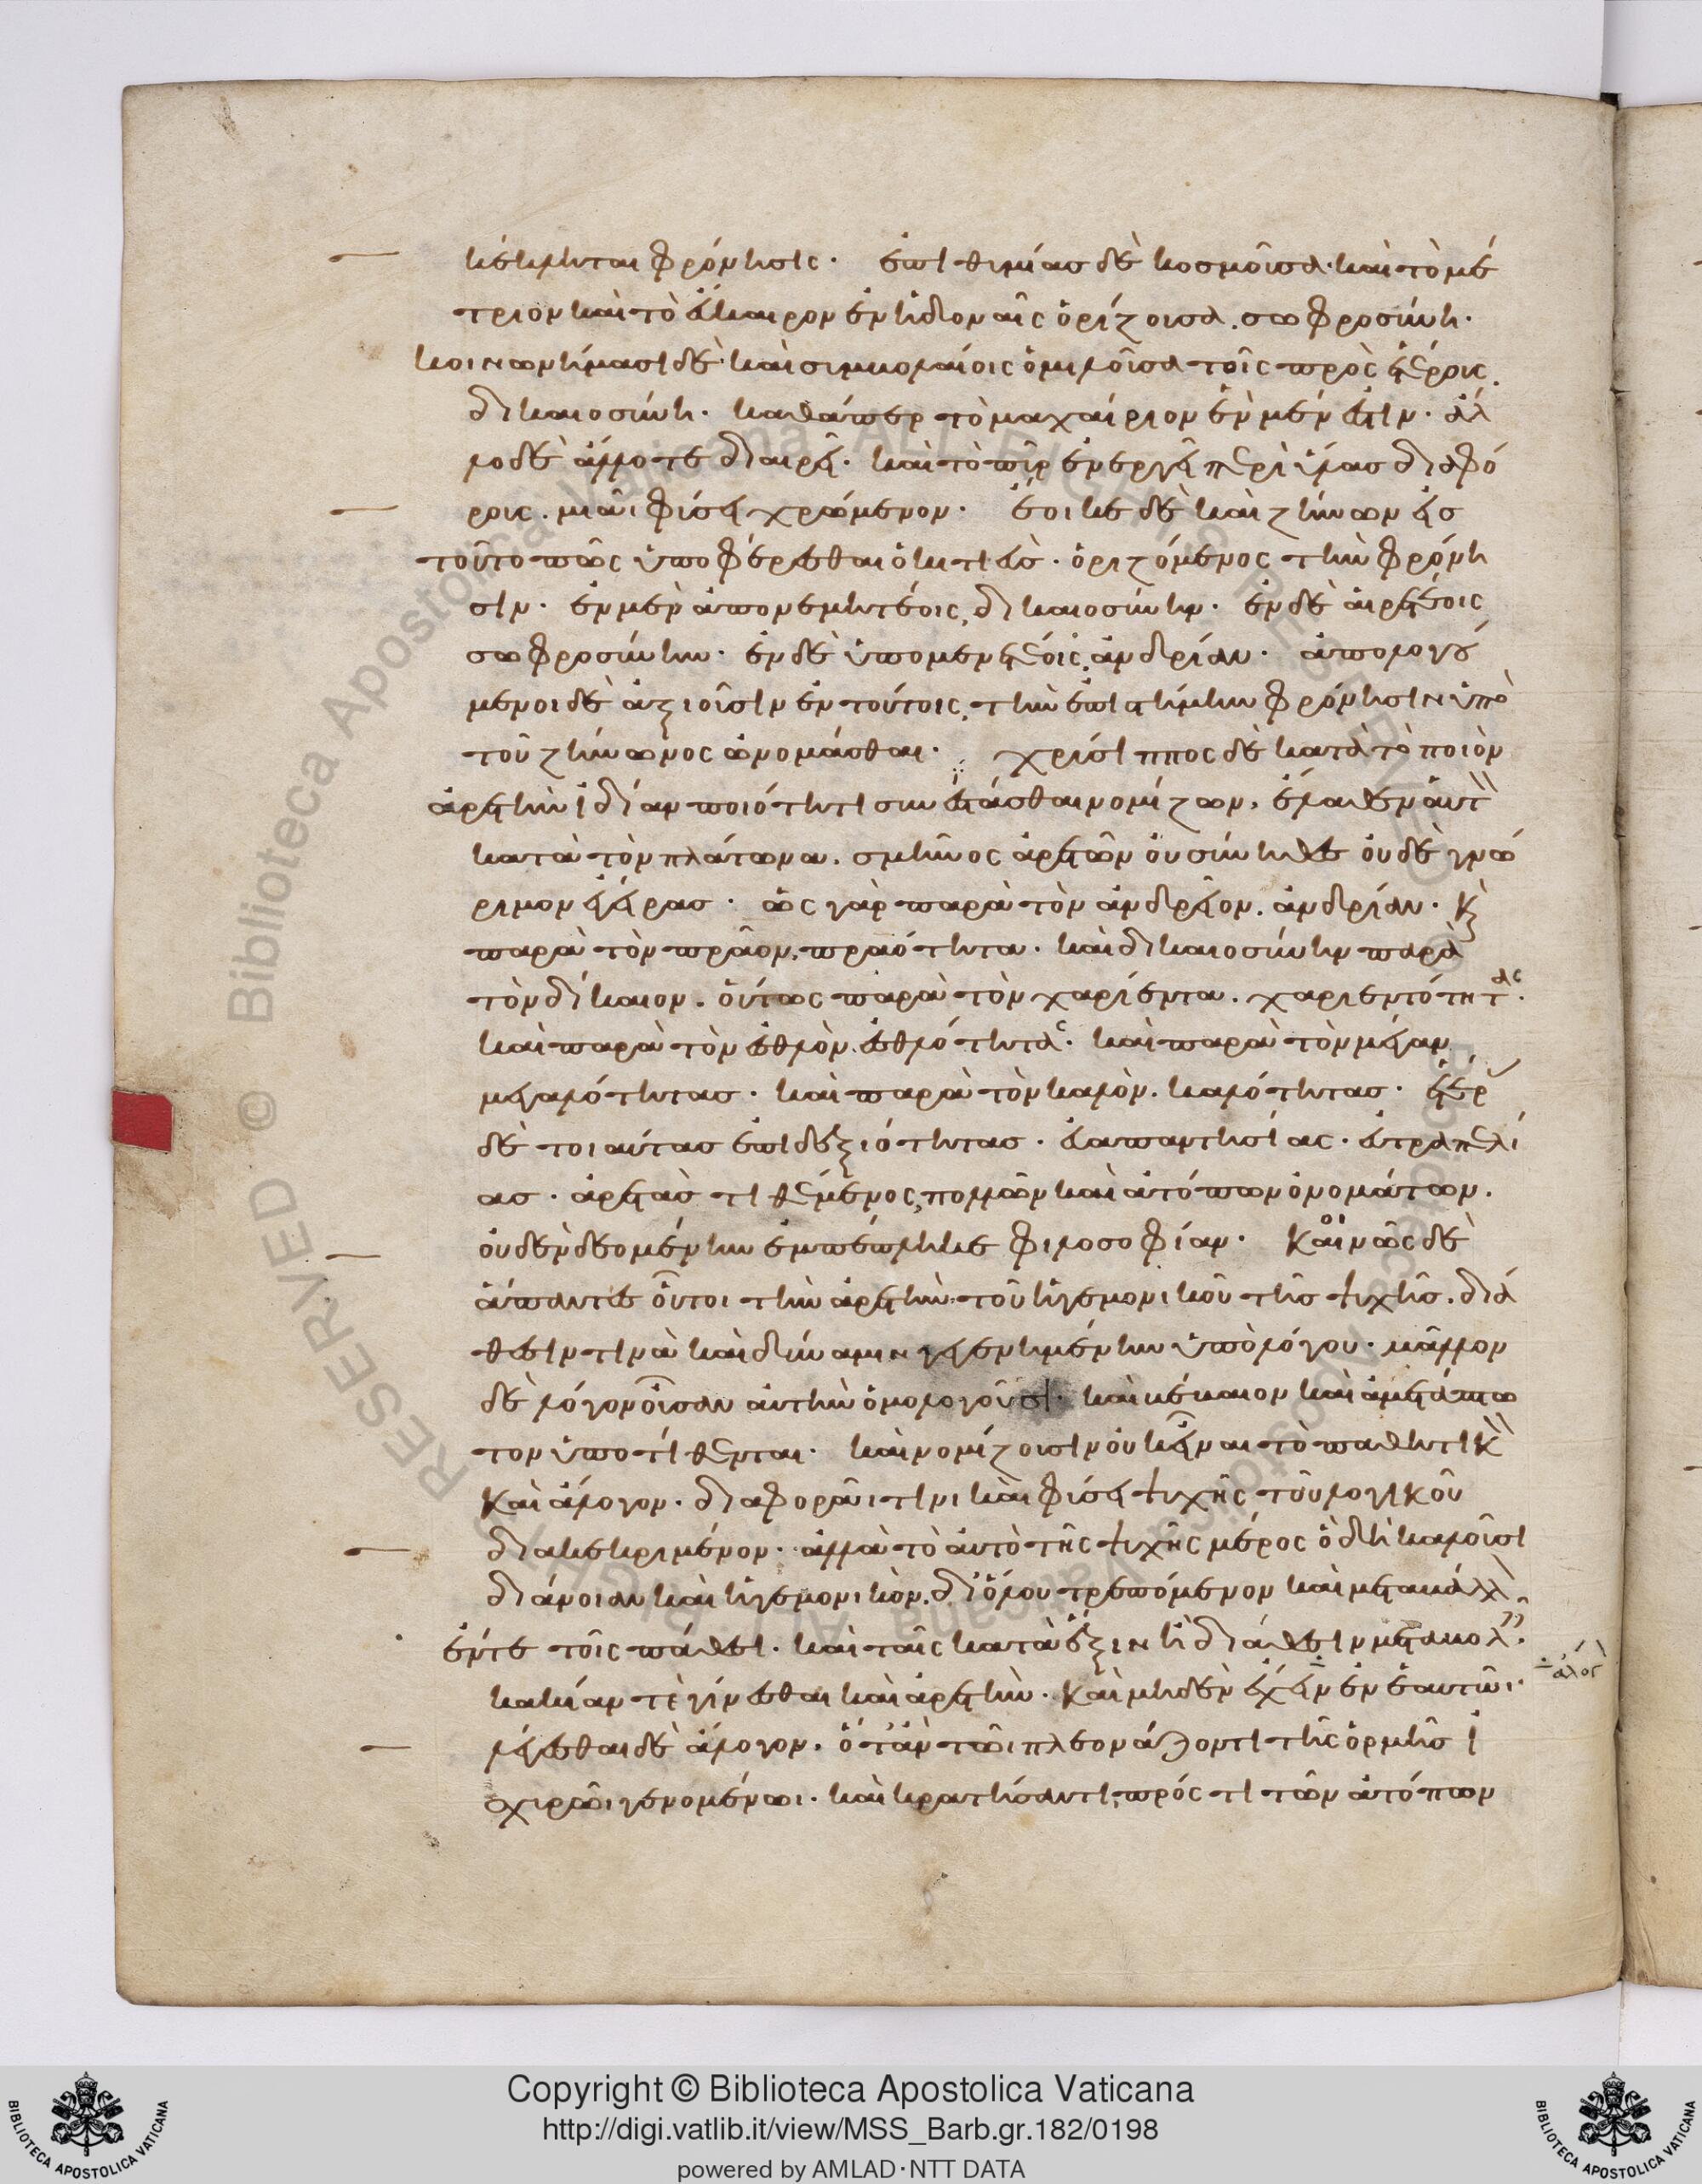 κέκληται φρόνησις· ἐπιθυμίας δὲ κοσμοῦσα· καὶ τὸ μέ
τριον καὶ τὸ εὔκαιρον ἐν ἡδοναῖς ὁρίζουσα. σωφροσύνη·
κοινωνήμασι δὲ καὶ συμβολαίοις ὁμιλοῦσα τοῖς πρὸς ἑτέρους.
δικαιοσύνη· καθάπερ τὸ μαχαίριον ἓν μέν ἐστιν· ἄλ
λο δὲ ἄλλοτε διαιρεῖ· καὶ τὸ πῦρ ἐνεργεῖ περὶ ὕλας διαφό
ρους. μιᾶι φύσει χρώμενον· ἔοικε δὲ καὶ ζήνων εἰς
τοῦτο πως ὑποφέρεσθαι ὁ κιτιεὺς· ὁριζόμενος τὴν φρόνη
σιν· ἐν μὲν ἀπονεμητέοις, δικαιοσύνην· ἐν δὲ αἱρετέοις
σωφροσύνην· ἐν δὲ ὑπομενετέοις. ἀνδρίαν· ἀπολογού
μενοι δὲ ἀξιοῦσιν ἐν τούτοις, τὴν ἐπιστήμην φρόνησιν ὑπὸ
τοῦ ζήνωνος ὠνομάσθαι· χρύσιππος δὲ κατὰ τὸ ποιὸν
ἀρετὴν ἰδίαν ποιότητι συνίστασθαι νομίζων, ἔλαθεν αὑτὸν
κατὰ τὸν πλάτωνα. σμῆνος ἀρετῶν οὐ σύνηθες οὐδὲ γνώ
ριμον ἐγείρας· ὡς γὰρ παρὰ τὸν ἀνδρεῖον. ἀνδρίαν· καὶ
παρὰ τὸν πρᾶον, πραότητα· καὶ δικαιοσύνην παρὰ
τὸν δίκαιον. οὕτως παρὰ τὸν χαρίεντα. χαριεντότητας·
καὶ παρὰ τὸν ἐσθλὸν. ἐσθλότητας· καὶ παρὰ τὸν μέγαν
μεγαλότητας· καὶ παρὰ τὸν καλὸν. καλότητας· ἑτέρας
δὲ τοιαύτας ἐπιδεξιότητας. εὐαπαντησίας. εὐτραπελί
ας· ἀρετὰς τιθέμενος, πολλῶν καὶ ἀτόπων ὀνομάτων.
οὐδὲν δεομένην ἐμπέπληκε φιλοσοφίαν· κοινῶς δὲ
ἅπαντες οὗτοι τὴν ἀρετὴν τοῦ ἡγεμονικοῦ τῆς ψυχῆς. διά
θεσιν τινὰ καὶ δύναμιν γεγενημένην ὑπὸ λόγου. μᾶλλον
δὲ λόγον οὖσαν αὐτὴν ὁμολογοῦσι· καὶ βέβαιον καὶ ἀμετάπτω
τον ὑποτίθενται· καὶ νομίζουσιν οὐκ εἶναι τὸ παθητικὸν
καὶ ἄλογον. διαφορᾶι τινι καὶ φύσει ψυχῆς τοῦ λογικοῦ
διακεκριμένον. ἀλλὰ τὸ αὐτὸ τῆς ψυχῆς μέρος ὃ δὴ καλοῦσι
διάνοιαν καὶ ἡγεμονικὸν. δι' ὅλου τρεπόμενον καὶ μεταβάλλον
ἔν τε τοῖς πάθεσι. καὶ ταῖς κατὰ ἕξιν ἢ διάθεσιν μεταβολαῖς.
κακίαν τὲ γίνεσθαι καὶ ἀρετὴν. καὶ μηδὲν ἔχειν ἐν ἑαυτῶι.
λέγεσθαι δὲ ἄλογον. ὅταν τῶι πλεονάζοντι τῆς ὁρμῆς ἰ
σχυρῶι γενομένωι. καὶ κρατήσαντι, πρός τι τῶν ἀτόπων
Copyright © Biblioteca Apostolica Vaticana
http://digi.vatlib.it/view/MSS_Barb.gr.182/0198
powered by AMLAD·NTT DATA